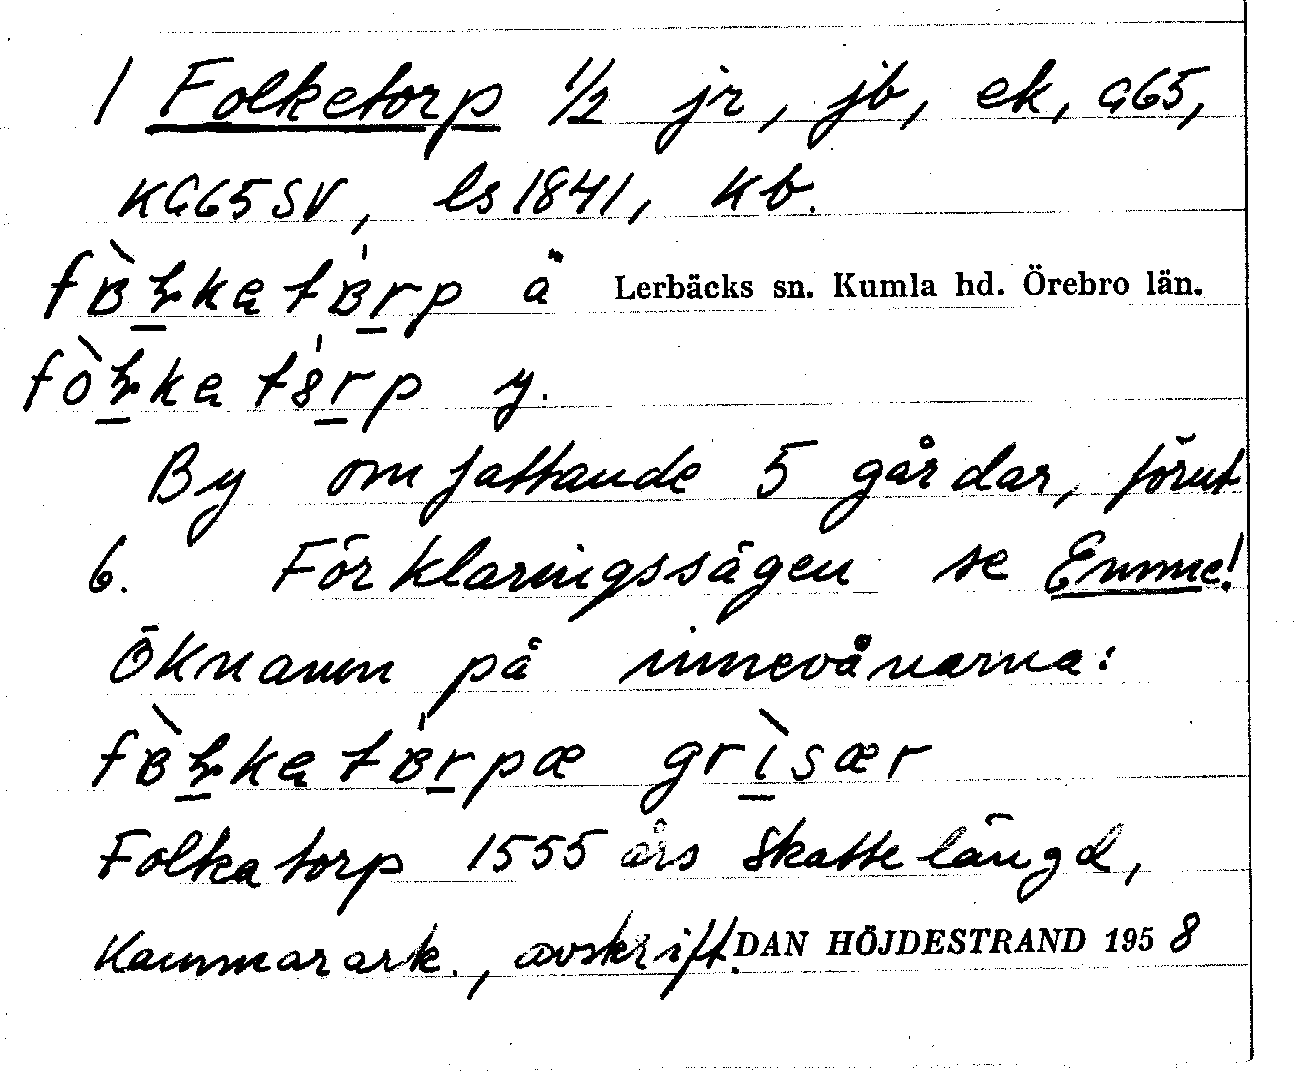 1 Folketorp 1/2 jr, jb, ek, G65,
KG65SV, ls 1841, kb.
fɞ̀ɽka tɞ́rp ä Lerbäcks sn. Kumla hd. Örebro län.
fòɽka tɞ́rp y.
By omfattande 5 gårdar, förut
6. Förklaringssägen se Emme!
Öknamn på innevånarna:
fɞ̀ɽka tɞ́rpæ grìsær
Folka torp 1555 års skattelängd,
Kammarark., avskrift. DAN HÖJDESTRAND 1958